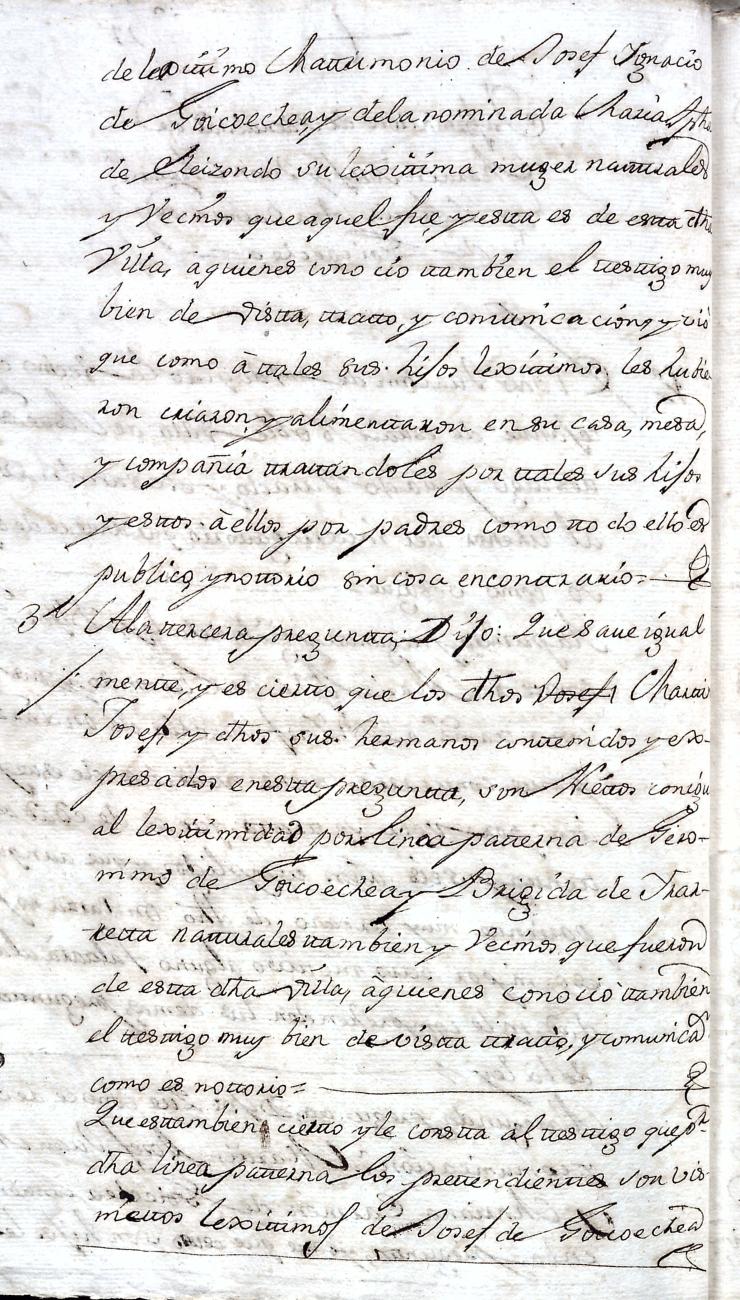 de lexittimo Matrimonio de Josef Ygnacio
de Goicoechea, y dela nominada Maria
de Eleizondo su lexittima muger natturales
y Vecinos que aquel fue, y estta es de estta dha
Villa, aquienes conocio ttambien el testtigo muy
bien de vistta, tratto, y comunicacion, y vió
que como á ttales sus hijos lexittimos les hubie
ron criaron, y alimenttaron en su casa, mesa,
y compañia trattandoles por ttales sus hijos
y esttos á ellos por padres como ttodo ello es
publico, y nottorio sin cosa enconttrario=
3ª Ala ttercera preguntta; Dijo: Que save igual
mentte, y es cierto que los dhos Josef Martin
Josef, y dhos sus hermanos conttenidos y ex-
presados en estta preguntta, son Niettos con igu
al lexittimidad por linea patterna de Gero-
nimo de Goicoechea, y Brigida de Yrar-
retta natturales ttambien y Vecinos que fueron
de estta dha Villa, áquienes conoció ttambien
el testtigo muy bien de vistta tratto, y comunicaon
como es nottorio=
Que esttambien cierto y le constta al testtigo que pr
dha linea patterna los prettendienttes son vis
niettos lexittimos de Josef de Goicoechea